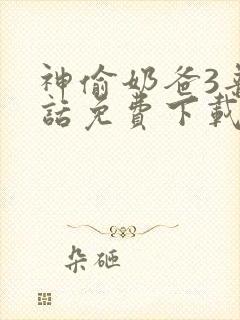 神偷奶爸3
話免費下載
朵砸